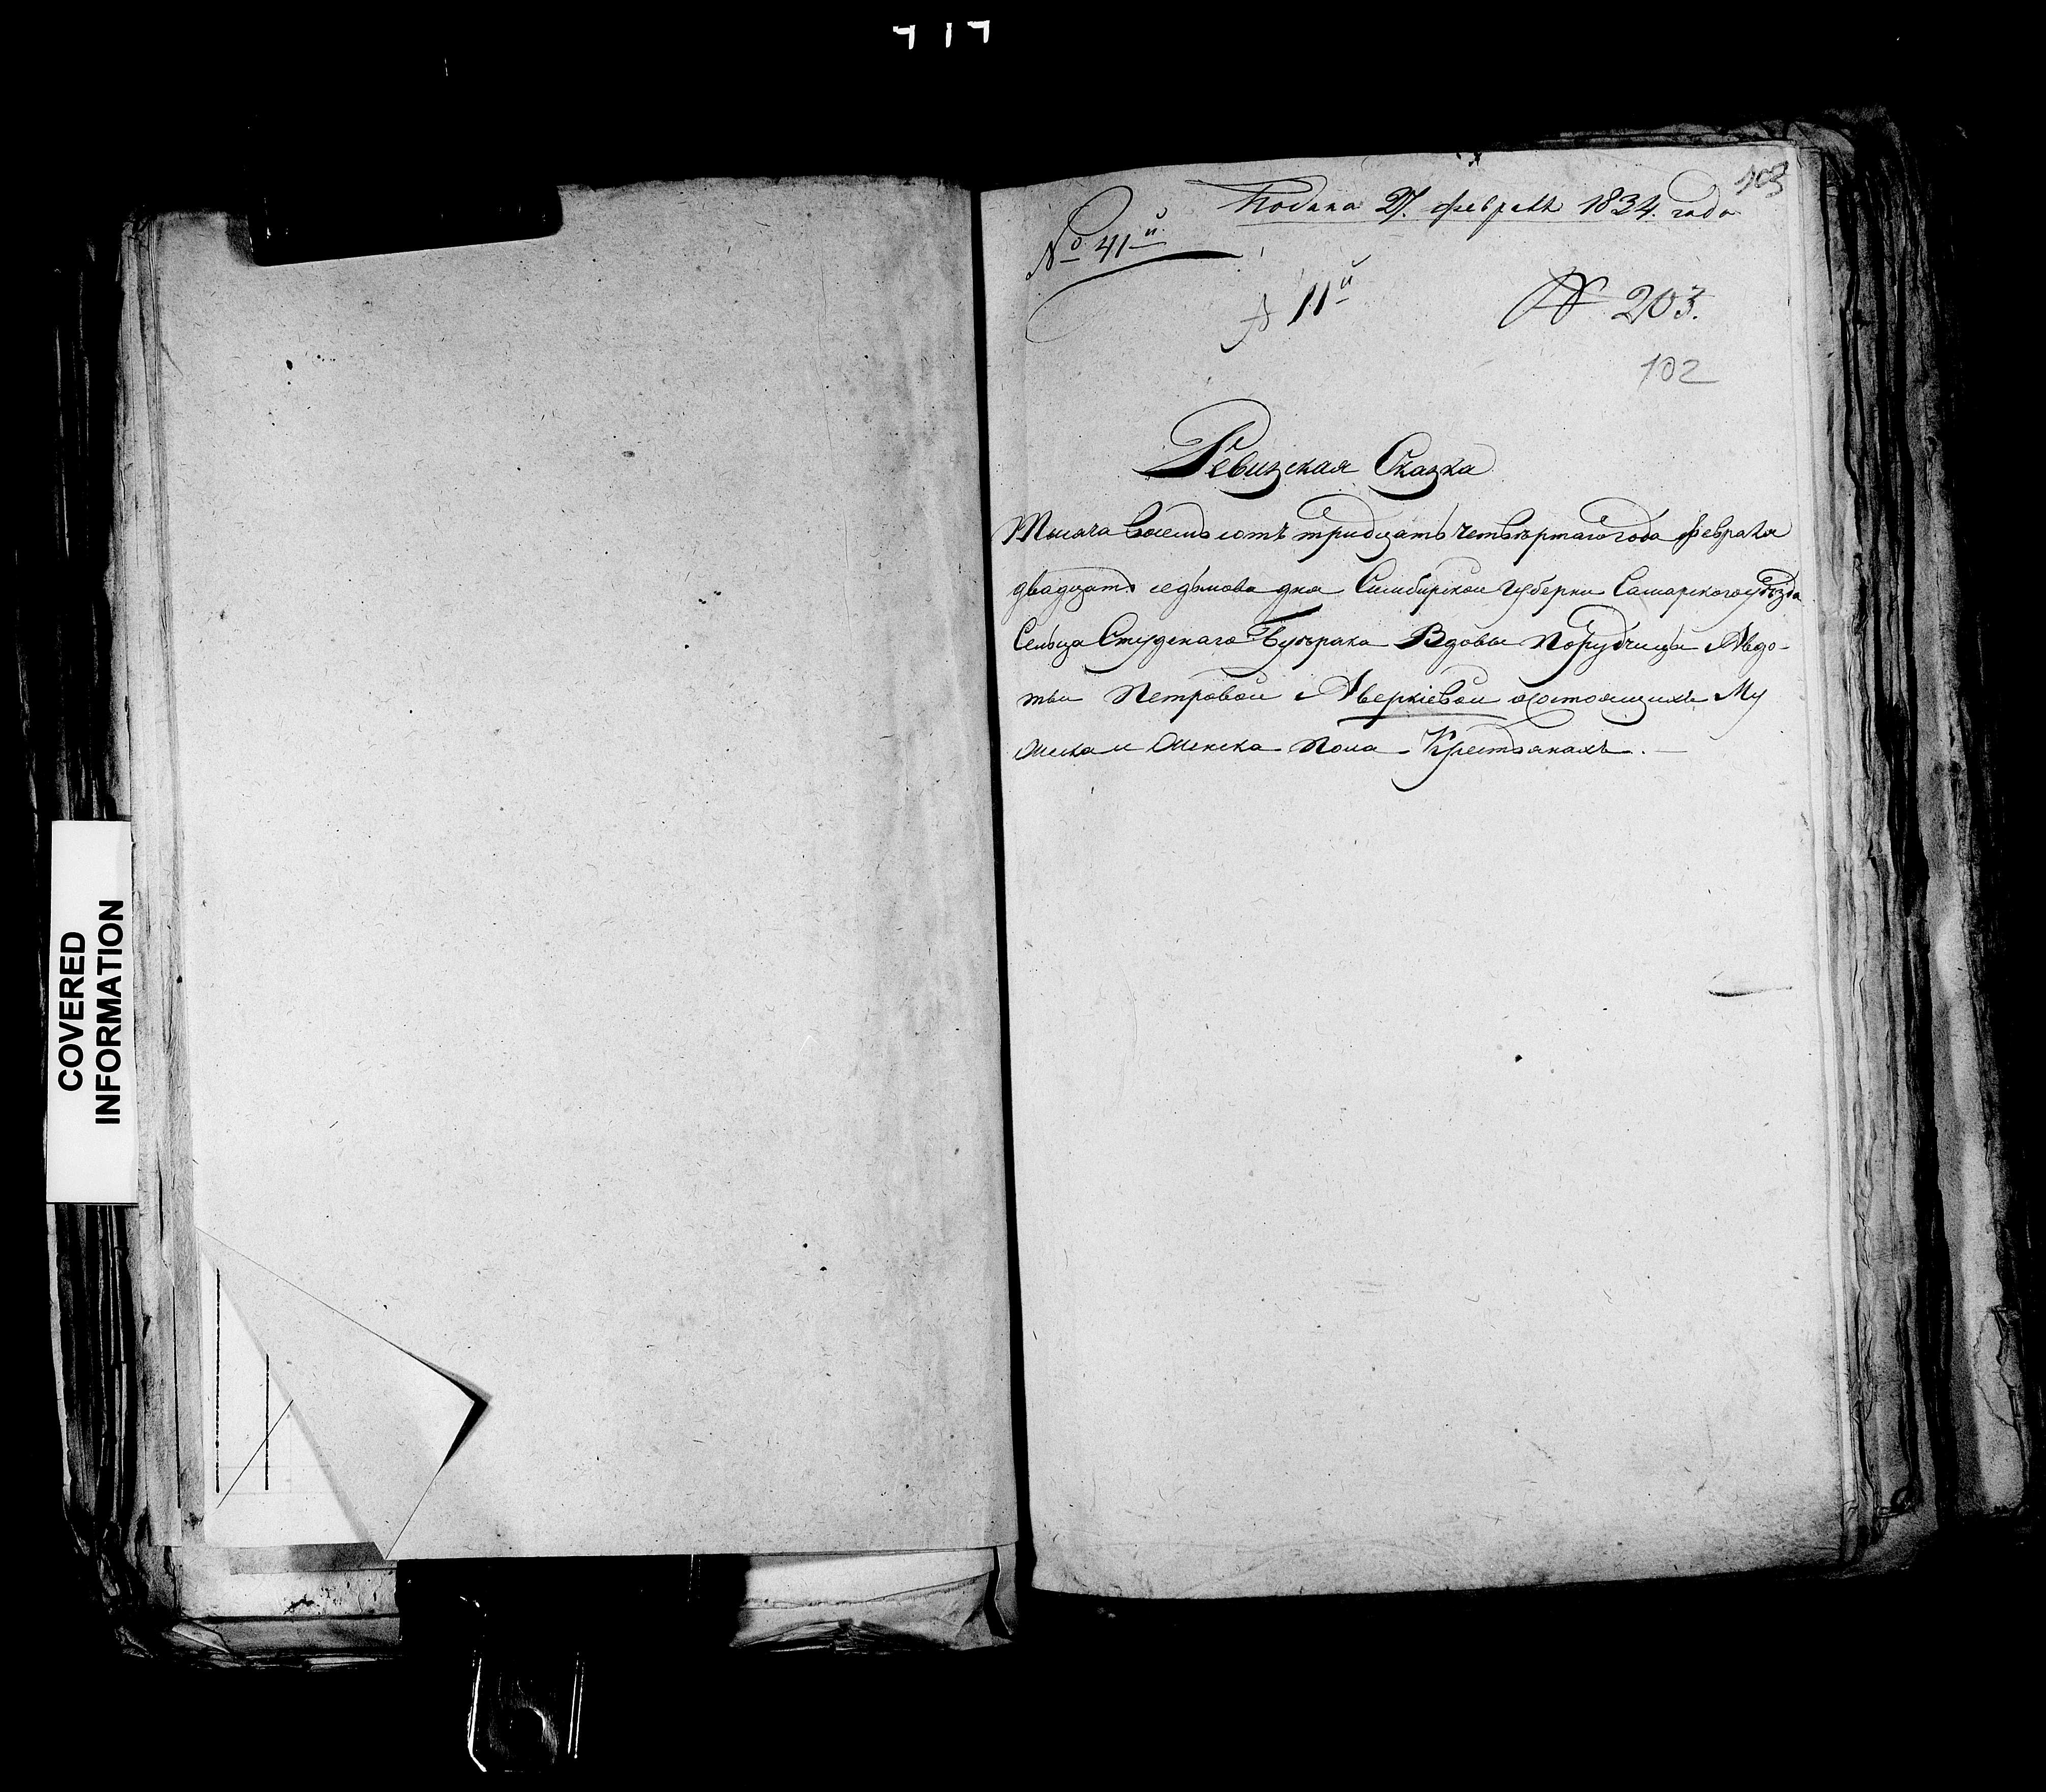 717
103
Подана 27. февраля 1834. года
№ 41й
11й
№ 203.
102
Ревизская Сказка
Тысяча восемь сотъ тридцать четвертаго года февраля
двадцать седьмова дня Симбирской Губерни Самарского уѣзда
Сельца Студенаго Буерака Вдовы Порудчицы Авдо-
тьи Петровой Аверкіевой о состоящихъ Му
жеска и Женска пола Крестьянахъ.
COVERED
INFORMATION